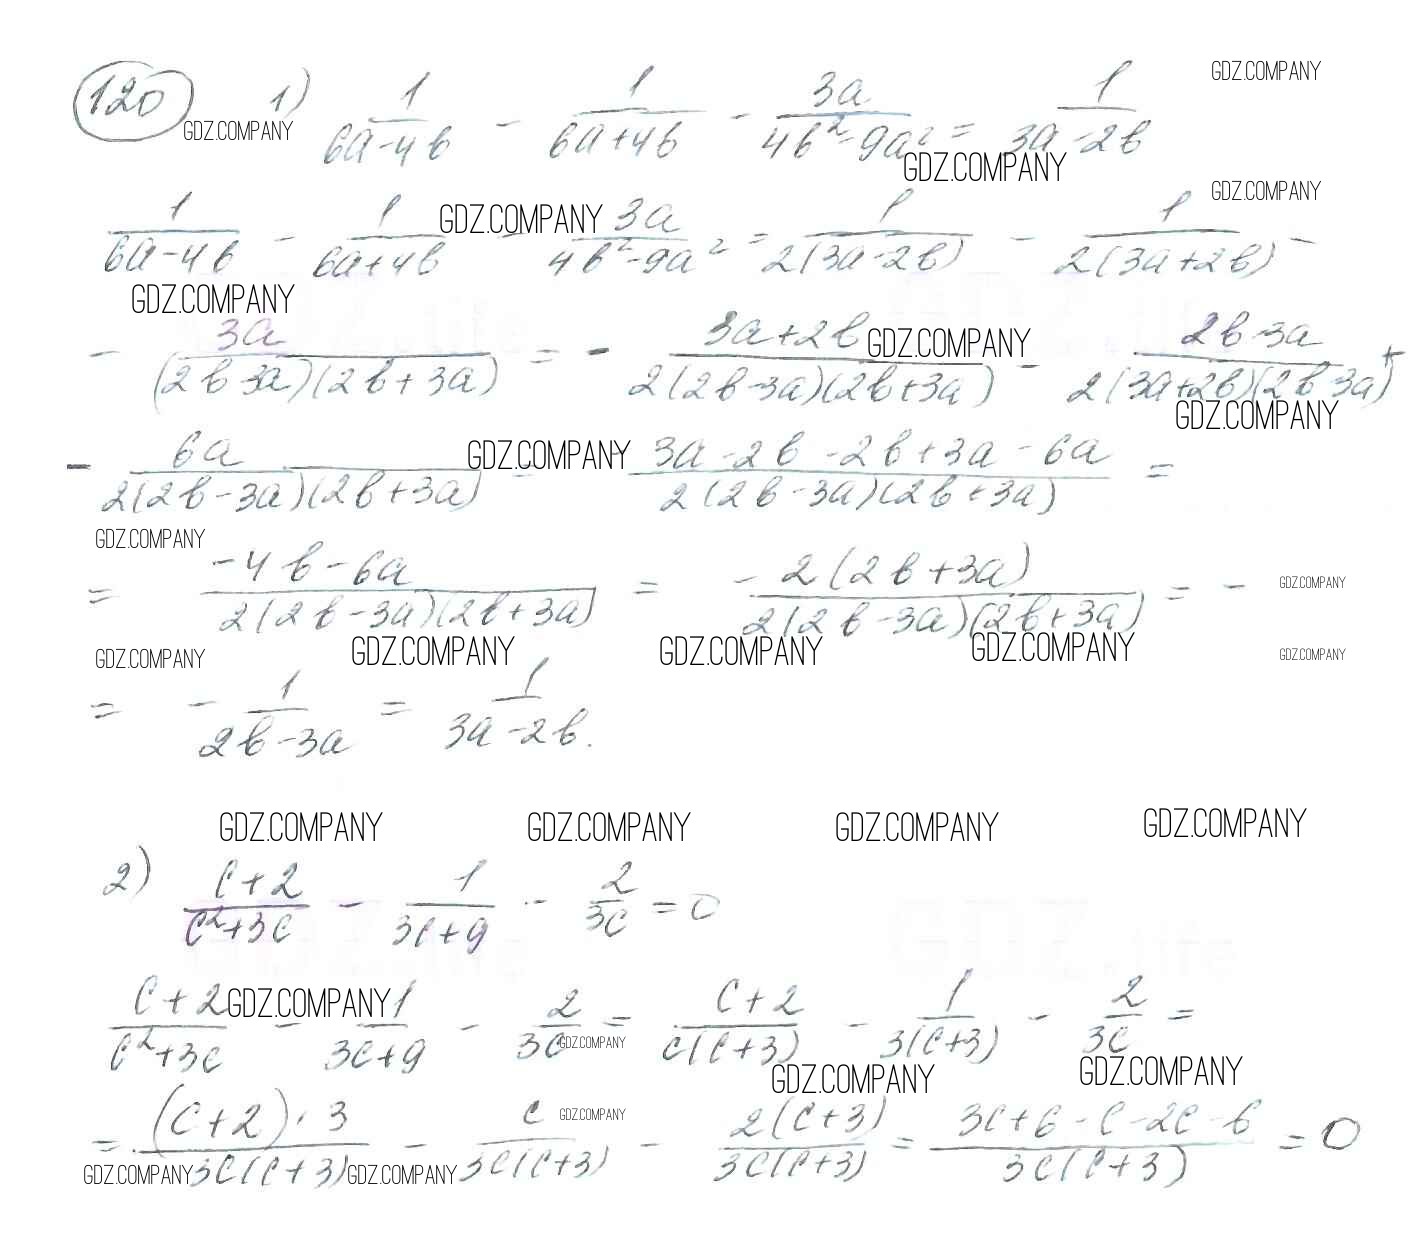 120 1) 1/(6a-4b) - 1/(6a+4b) - 3a/(4b²-9a²) = 1/(3a-2b) GDZ.COMPANY
GDZ.COMPANY GDZ.COMPANY
1/(6a-4b) - 1/(6a+4b) - 3a/(4b²-9a²) = 1/(2(3a-2b)) - 1/(2(3a+2b)) - GDZ.COMPANY GDZ.COMPANY
GDZ.COMPANY
- 3a/((2b-3a)(2b+3a)) = - (3a+2b)/(2(2b-3a)(2b+3a)) - (2b-3a)/(2(3a+2b)(2b-3a)) + GDZ.COMPANY
GDZ.COMPANY
- 6a/(2(2b-3a)(2b+3a)) = (-3a-2b-2b+3a-6a)/(2(2b-3a)(2b+3a)) = GDZ.COMPANY
GDZ.COMPANY
= (-4b-6a)/(2(2b-3a)(2b+3a)) = - 2(2b+3a)/(2(2b-3a)(2b+3a)) = - GDZ.COMPANY
GDZ.COMPANY GDZ.COMPANY GDZ.COMPANY GDZ.COMPANY GDZ.COMPANY
= - 1/(2b-3a) = 1/(3a-2b).
GDZ.COMPANY GDZ.COMPANY GDZ.COMPANY GDZ.COMPANY
2) (c+2)/(c²+3c) - 1/(3c+9) - 2/(3c) = 0
GDZ.life GDZ.life
(c+2)/(c²+3c) - 1/(3c+9) - 2/(3c) = (c+2)/(c(c+3)) - 1/(3(c+3)) - 2/(3c) = GDZ.COMPANY GDZ.COMPANY
GDZ.COMPANY GDZ.COMPANY
= (c+2)·3/(3c(c+3)) - c/(3c(c+3)) - 2(c+3)/(3c(c+3)) = (3c+6-c-2c-6)/(3c(c+3)) = 0 GDZ.COMPANY
GDZ.COMPANY GDZ.COMPANY